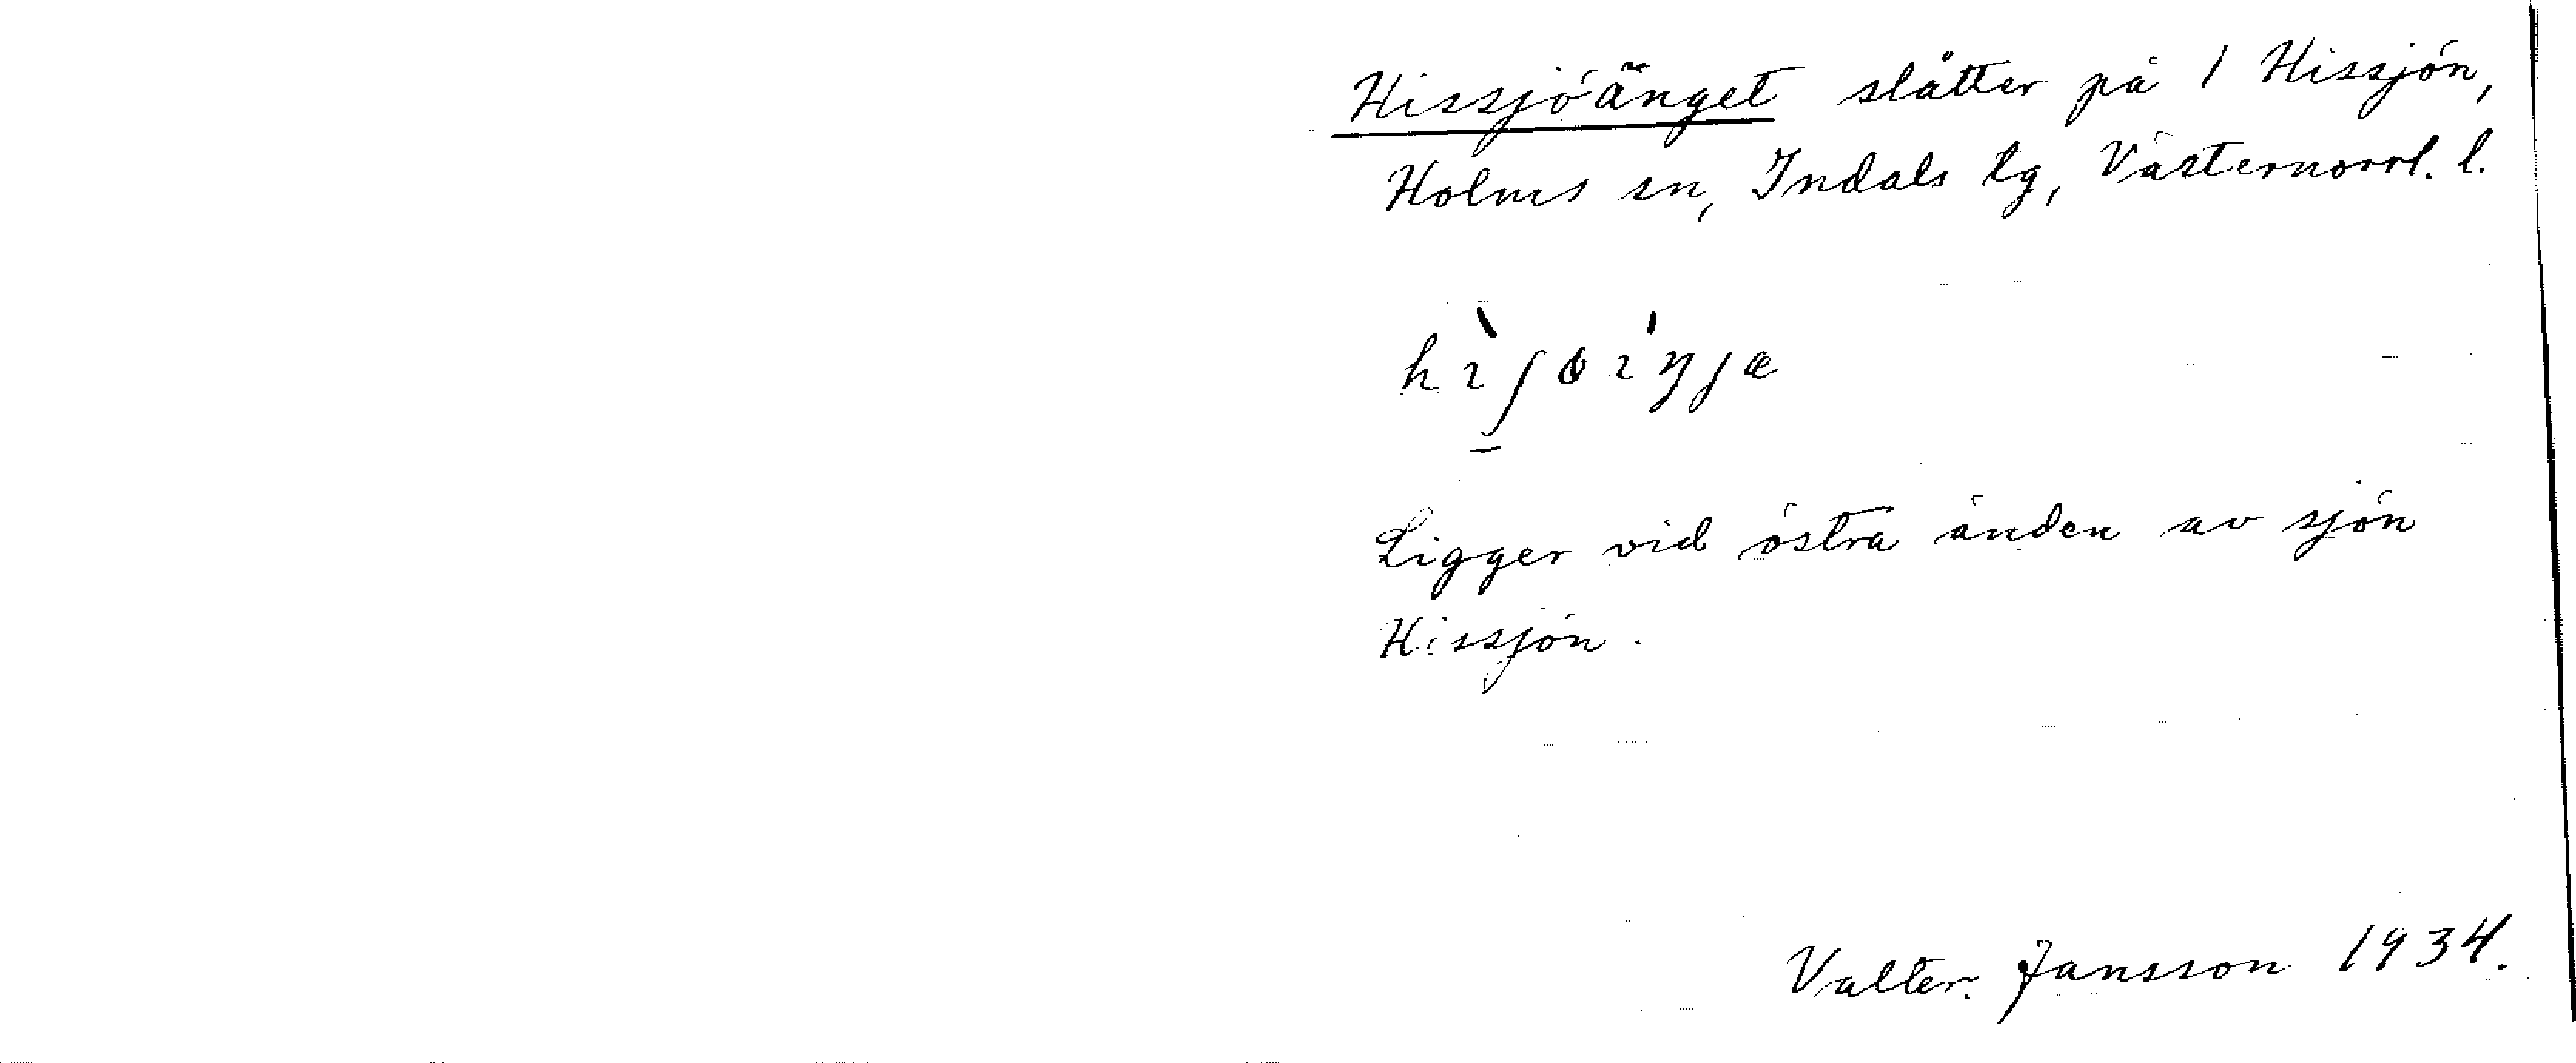 Hissjöänget slåtter på 1 Hissjön,
Holms sn, Indals tg, Västernorrl. l.
hìʃɵıŋja
Ligger vid östra änden av sjön
Hissjön.
Valter Jansson 1934.